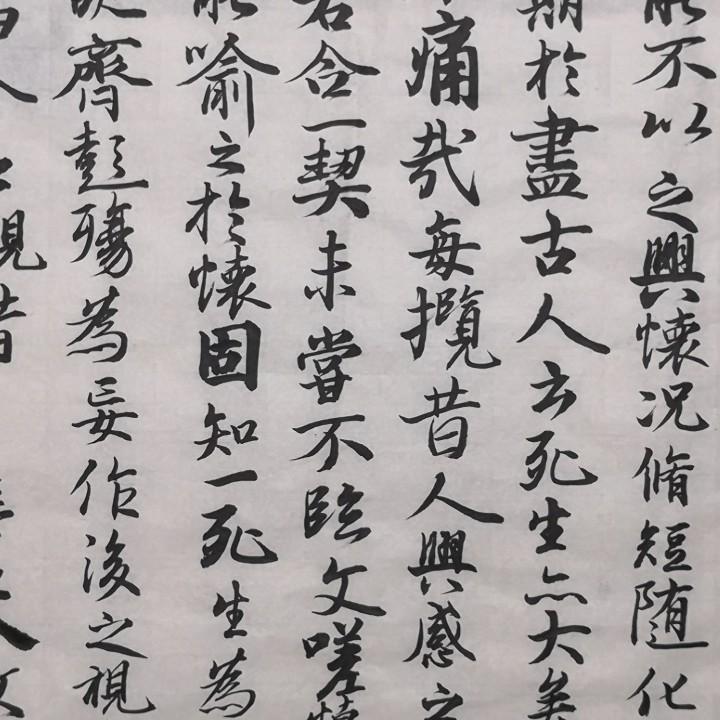 能不以之興懷况脩短随化
期於盡古人云死生亦大矣
痛哉每攬昔人興感之
若合一契未嘗不臨文嗟悼
能喻之於懷固知一死生為
齊彭殤為妄作後之視
視昔